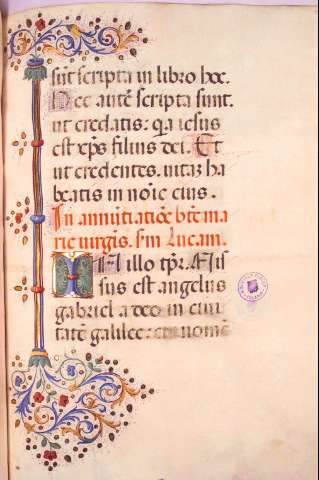 sūt scripta in libro hoc.
Hec autē scripta sunt.
ut credatis: q̄a iesus
est xp̄s filius dei. Et
ut credentes. uitaʒ ha
beatis in noīe eius.
In annūtiatiōe btē ma
rie uirgīs. sm̄ Lucam.
IN illo tp̄r. Mis
sus est angelus
gabriel a deo in ciui
tatē galilee: cui nomē